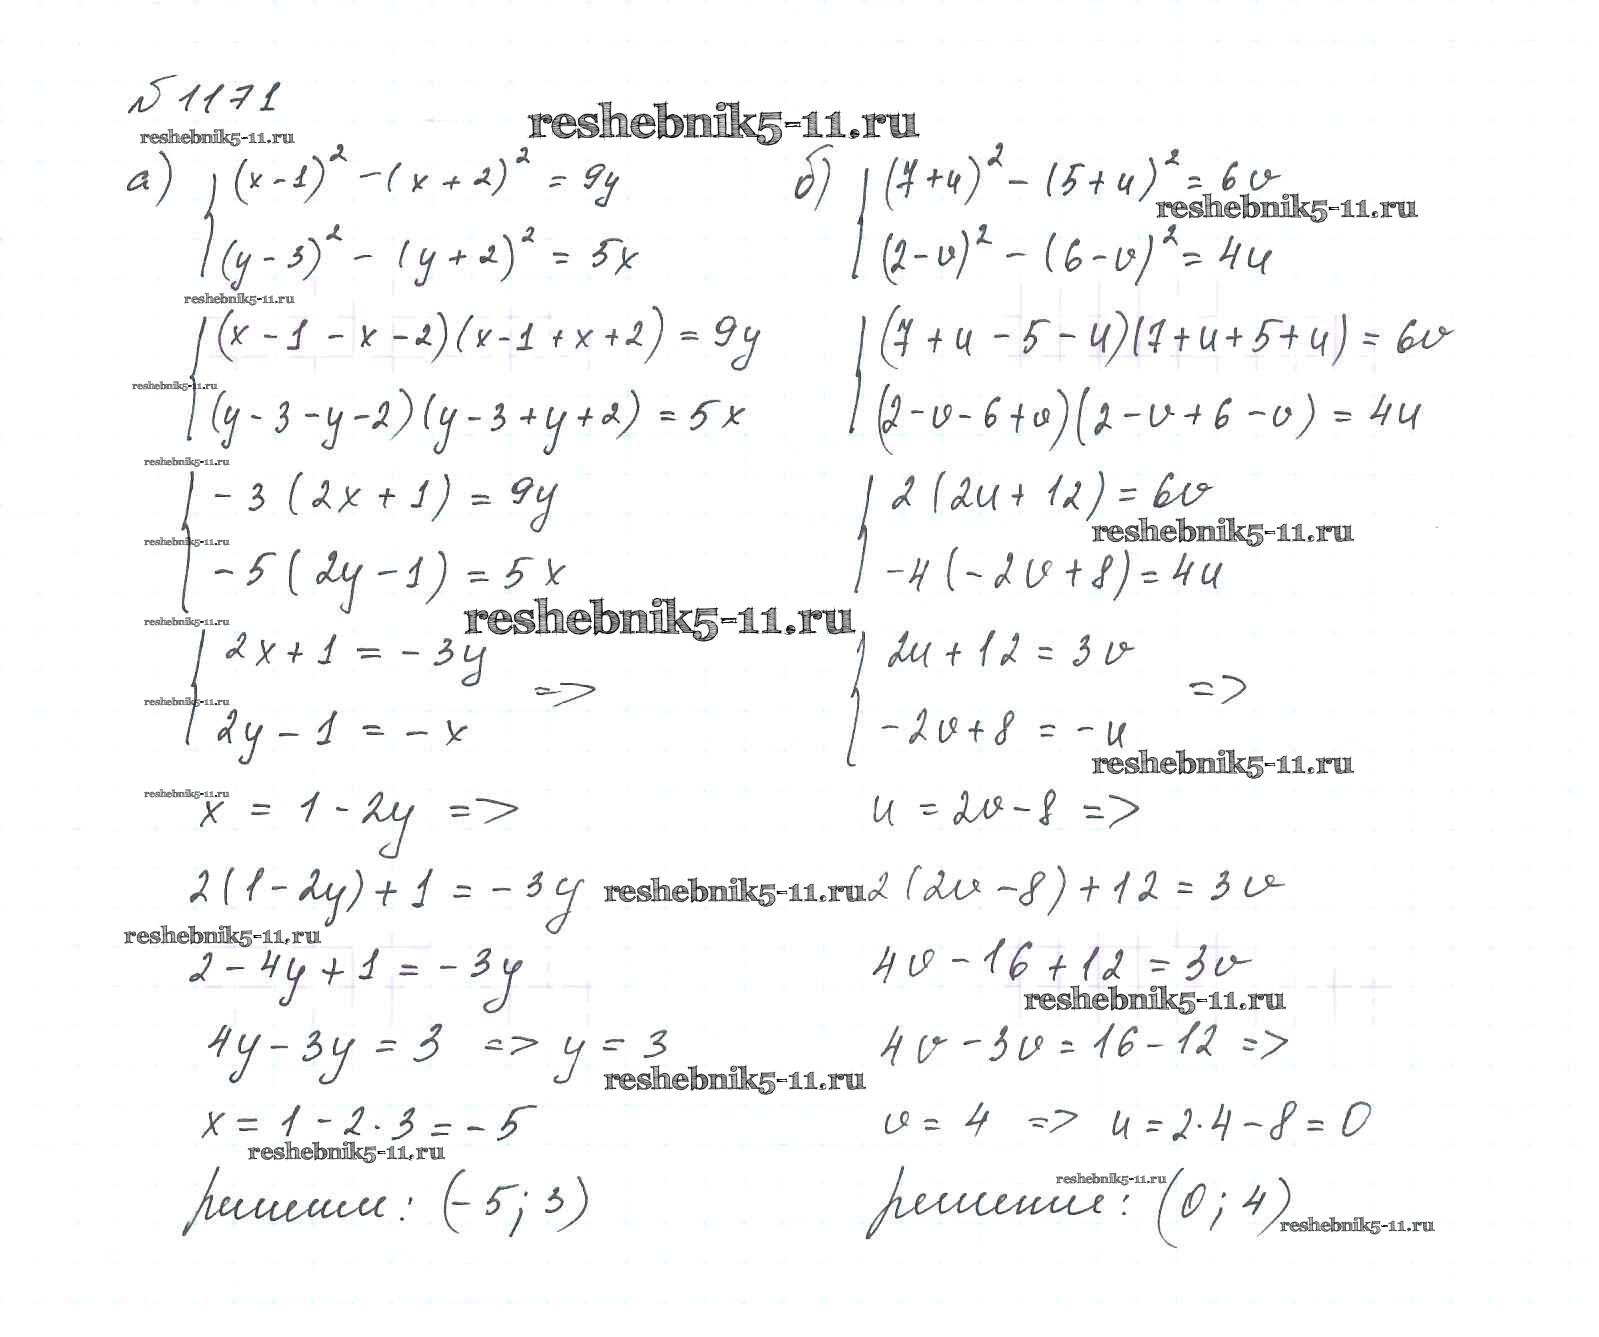 № 1171
reshebnik5-11.ru
reshebnik5-11.ru
а) { (x-1)² - (x+2)² = 9y
(y-3)² - (y+2)² = 5x
reshebnik5-11.ru
{ (x-1-x-2)(x-1+x+2) = 9y
reshebnik5-11.ru
(y-3-y-2)(y-3+y+2) = 5x
reshebnik5-11.ru
{ -3(2x+1) = 9y
reshebnik5-11.ru
-5(2y-1) = 5x
reshebnik5-11.ru
reshebnik5-11.ru
{ 2x+1 = -3y
=>
reshebnik5-11.ru
2y-1 = -x
reshebnik5-11.ru
x = 1-2y =>
2(1-2y)+1 = -3y
reshebnik5-11.ru
reshebnik5-11.ru
2-4y+1 = -3y
4y-3y = 3 => y = 3
reshebnik5-11.ru
x = 1-2·3 = -5
reshebnik5-11.ru
решение: (-5; 3)
б) { (7+u)² - (5+u)² = 6v
reshebnik5-11.ru
(2-v)² - (6-v)² = 4u
{ (7+u-5-u)(7+u+5+u) = 6v
(2-v-6+v)(2-v+6-v) = 4u
{ 2(2u+12) = 6v
reshebnik5-11.ru
-4(-2v+8) = 4u
{ 2u+12 = 3v
=>
-2v+8 = -u
reshebnik5-11.ru
u = 2v-8 =>
2(2v-8)+12 = 3v
4v-16+12 = 3v
reshebnik5-11.ru
4v-3v = 16-12 =>
v = 4 => u = 2·4-8 = 0
reshebnik5-11.ru
решение: (0; 4)
reshebnik5-11.ru